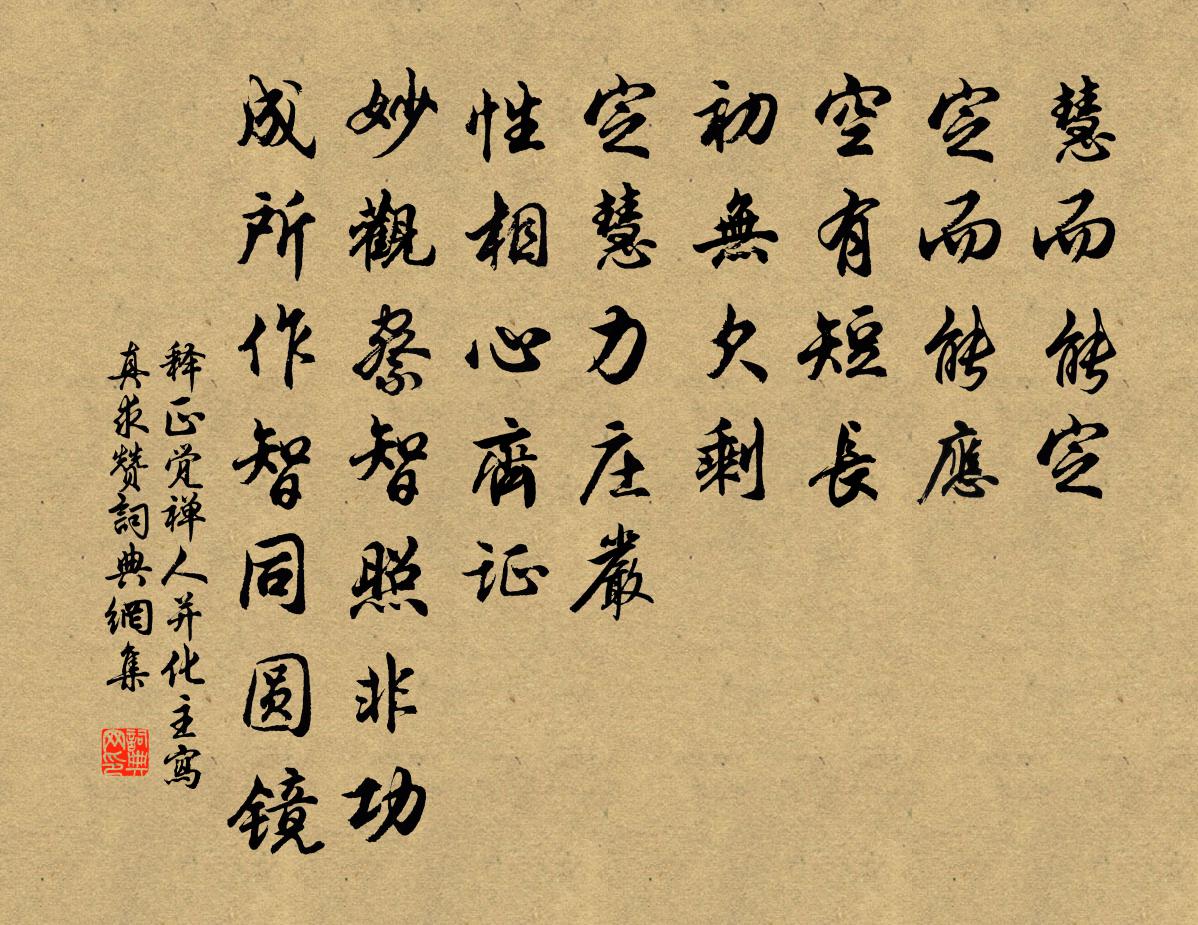 慧而能定
定而能應
空有短長
初無欠剩
定慧力庄嚴
性相心齊证
妙觀察智照非功
成所作智同圆镜
释正觉禅人并化主寫
真求赞詞典網集
詞典網印